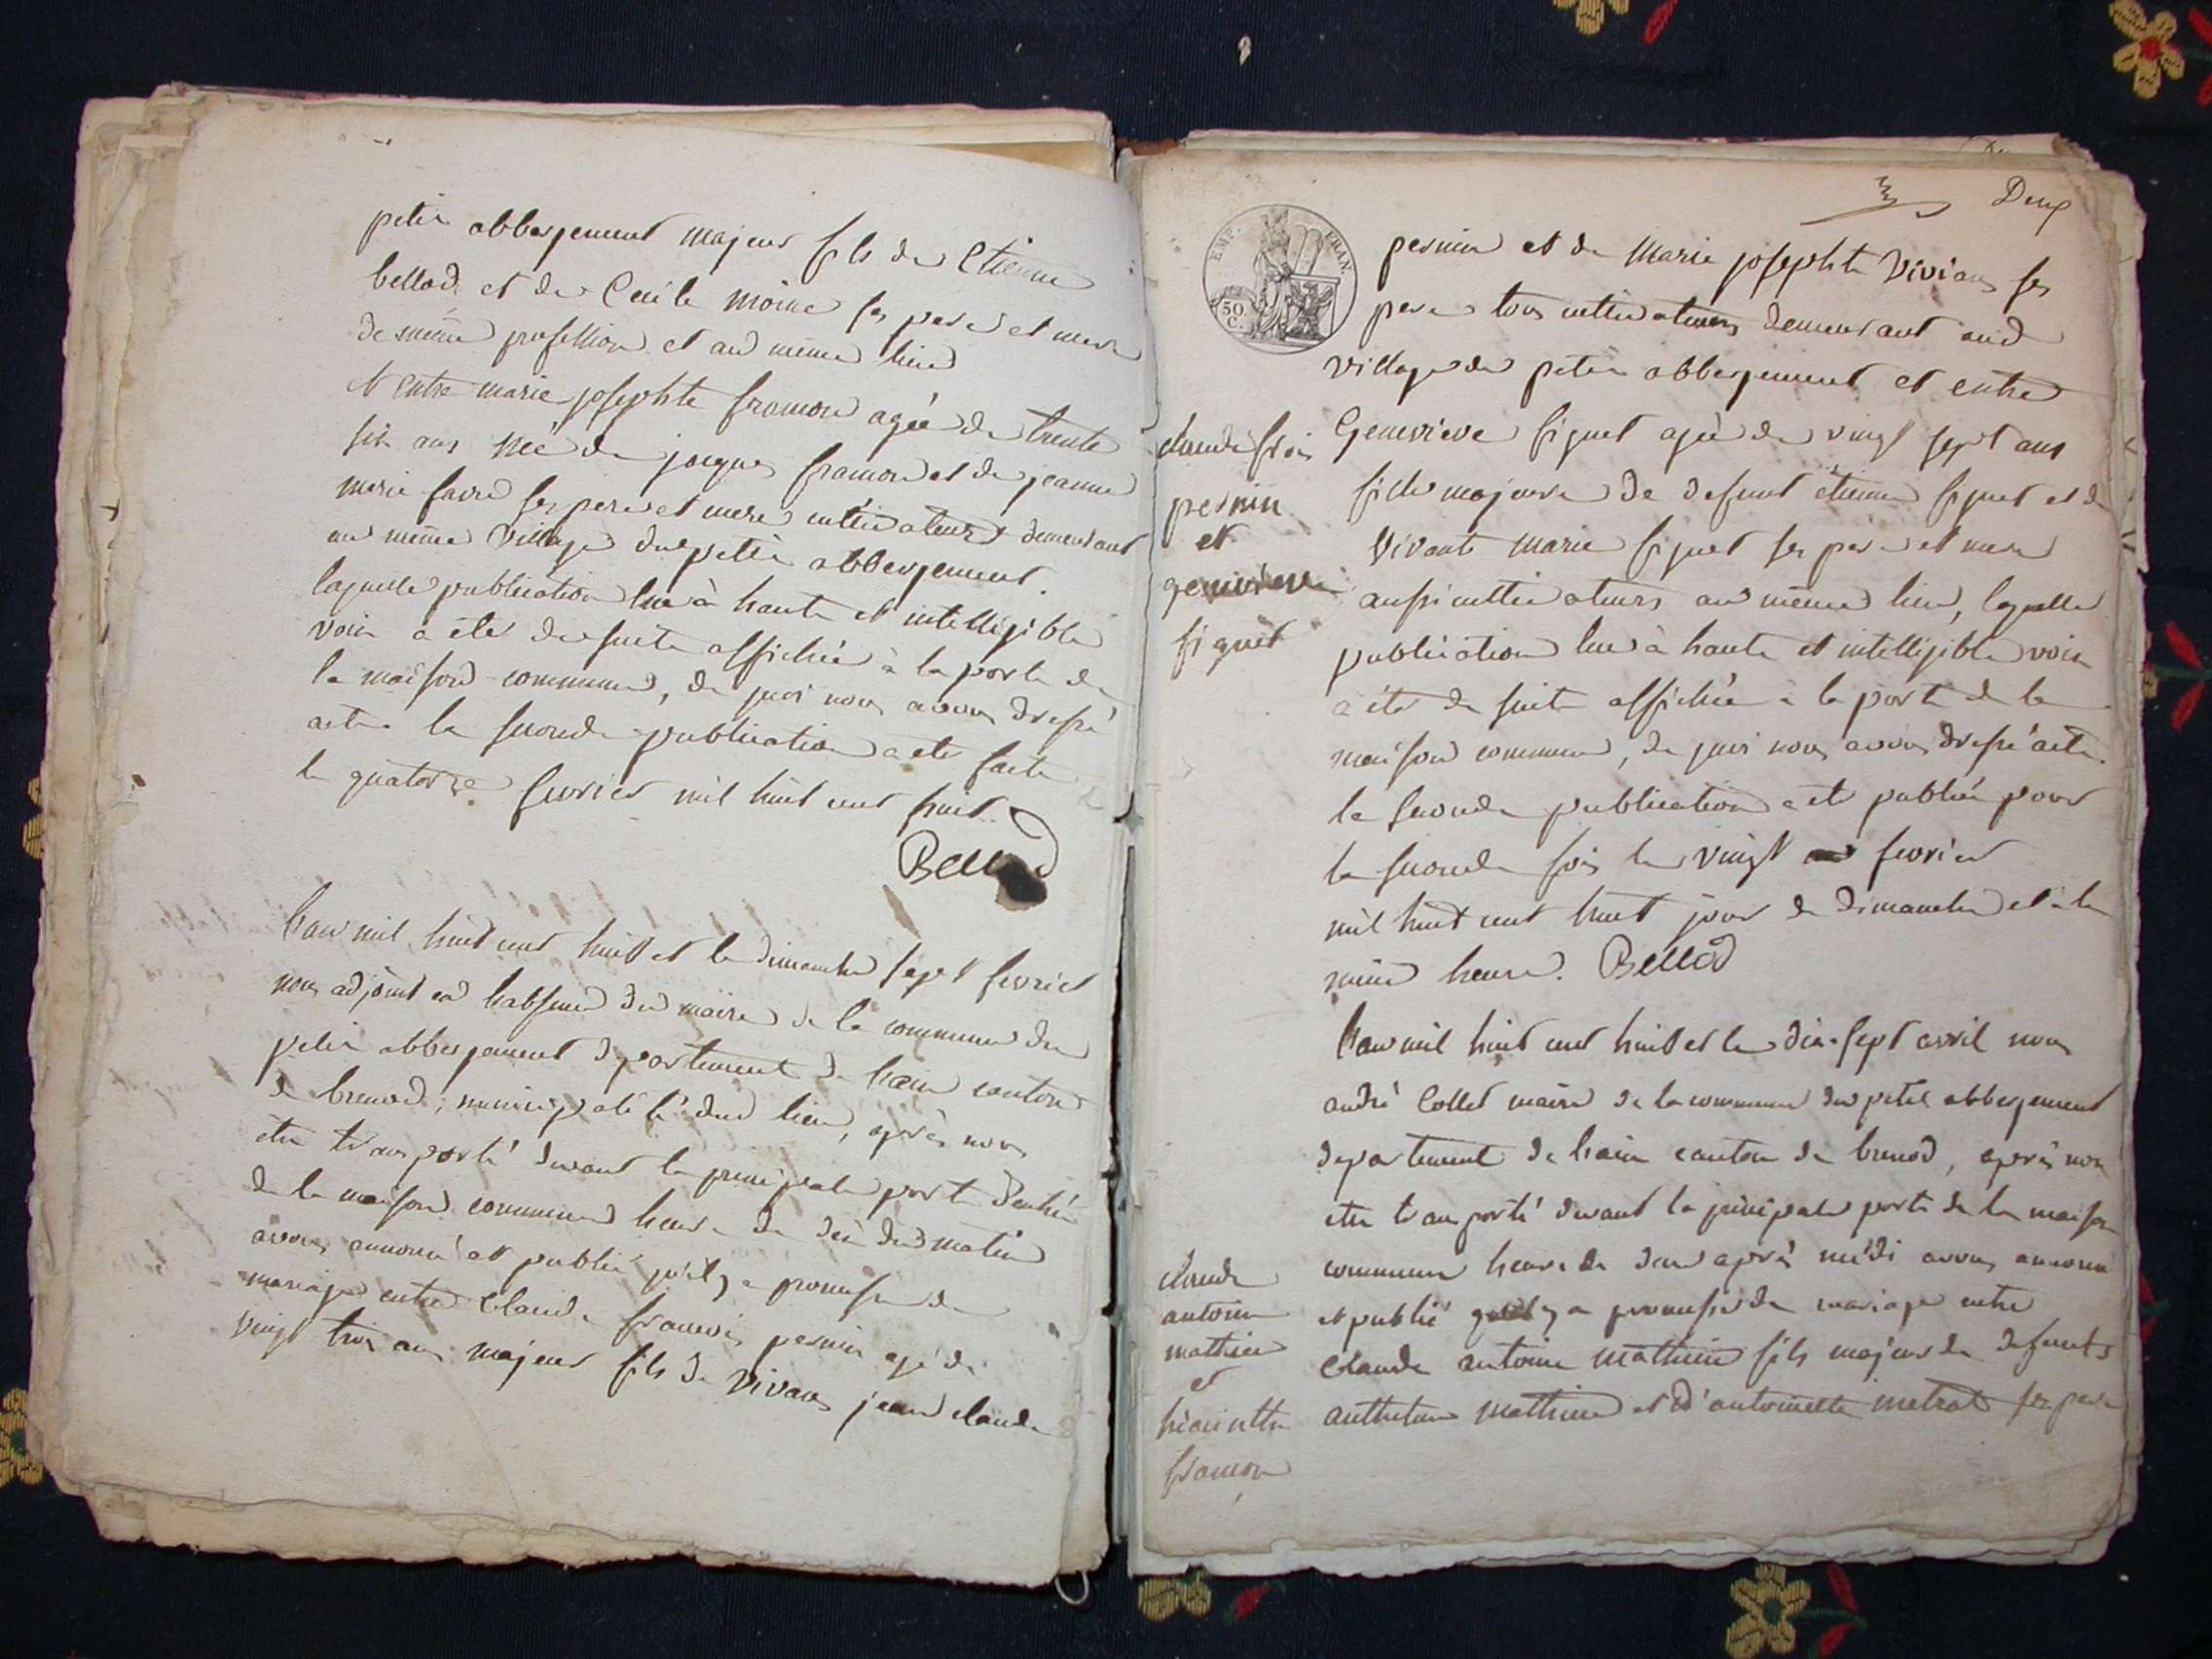 petit abbergement majeur fils de Etienne
bellod et de Cecile moine ses pere et mere
de même profession et au même lieu
et entre marie josephte framon agée de trente
six ans née de jacques framon et de jeanne
marie favre ses pere et mere cultivateurs demeurant
au même village du petit abbergement.
laquelle publication lue à haute et intelligible
voix a été de suite affichée à la porte de
la maison commune, de quoi nous avons dressé
acte la seconde publication a été faite
le quatorze fevrier mil huit cent huit.
Bellod
L'an mil huit cent huit et le dimanche sept fevrier
nous adjoint en l'absence du maire de la commune du
petit abbergement departement de l'ain canton
de brenod, municipalité dud lieu, après nous
etre transporté devant la principale porte d'entrée
de la maison commune heure de dix du matin
avons annoncé et publié qu'il y a promesse de
mariage entre Claude françois pernin agé de
vingt trois ans majeur fils de vivans jean claude
Deux
EMP. FRAN.
50
C.
pernin et de Marie josephte Vivian ses
pere tous cultivateurs demeurant aud
village du petit abbergement et entre
Genevieve figuet agée de vingt sept ans
fille majeure de defunt étienne figuet et de
vivante marie figuet ses pere et mere
aussi cultivateurs au même lieu, laquelle
publication lue à haute et intelligible voix
a été de suite affichée à la porte de la
maison commune, de quoi nous avons dressé acte.
la seconde publication a été publiée pour
la seconde fois le vingt fevrier
mil huit cent huit jour de dimanche et à la
même heure. Bellod
claude frois
pernin
et
genevieve
figuet
L'an mil huit cent huit et le dix-sept avril nous
andré Collet maire de la commune du petit abbergement
departement de l'ain canton de brenod, après nous
etre transporté devant la principale porte de la maison
commune heure de deux après midi avons annoncé
et publié qu'il y a promesse de mariage entre
Claude antoine mathieu fils majeur de defunts
anthelme mathieu et d'antoinette metrat ses pere
claude
antoine
mathieu
et
hiacinthe
framon